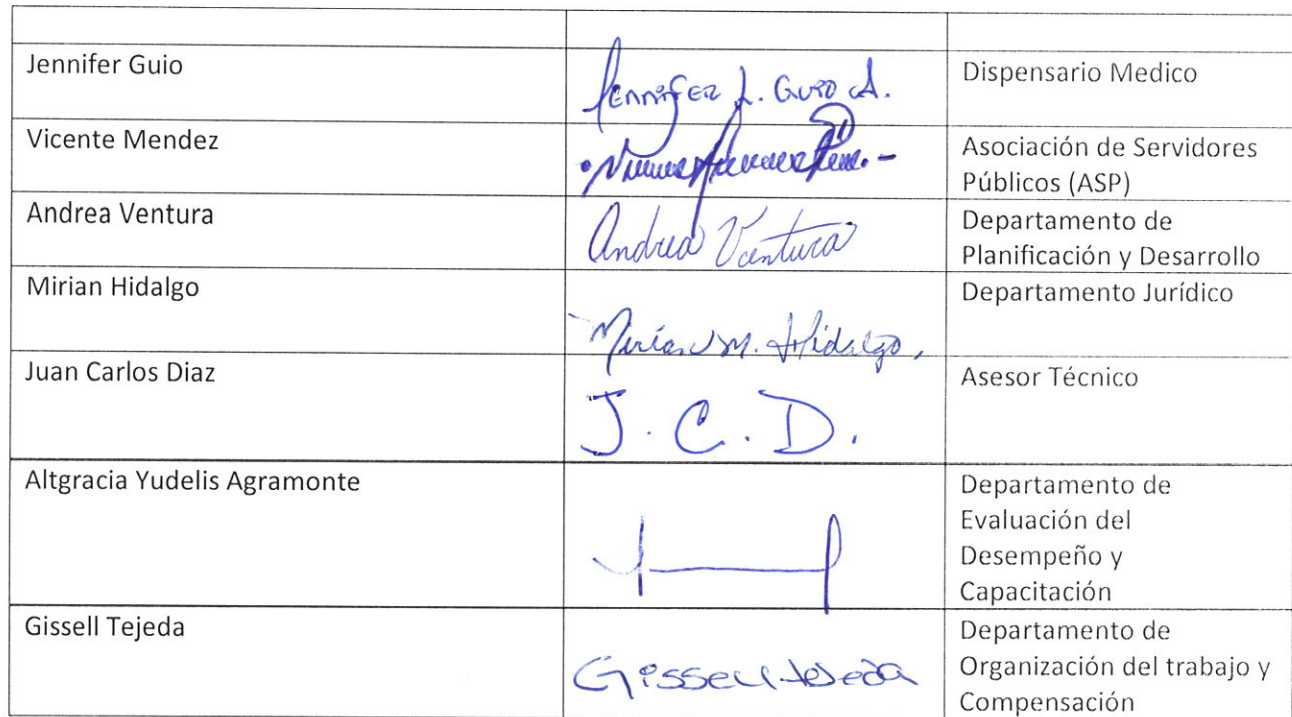 Jennifer Guio
Jennifer J. Guio A.
Dispensario Medico
Vicente Mendez
Asociación de Servidores
Públicos (ASP)
Andrea Ventura
Andrea Ventura
Departamento de
Planificación y Desarrollo
Mirian Hidalgo
Mirian M. Hidalgo,
Departamento Jurídico
Juan Carlos Diaz
J. C. D.
Asesor Técnico
Altgracia Yudelis Agramonte
Departamento de
Evaluación del
Desempeño y
Capacitación
Gissell Tejeda
Gissell tejeda
Departamento de
Organización del trabajo y
Compensación